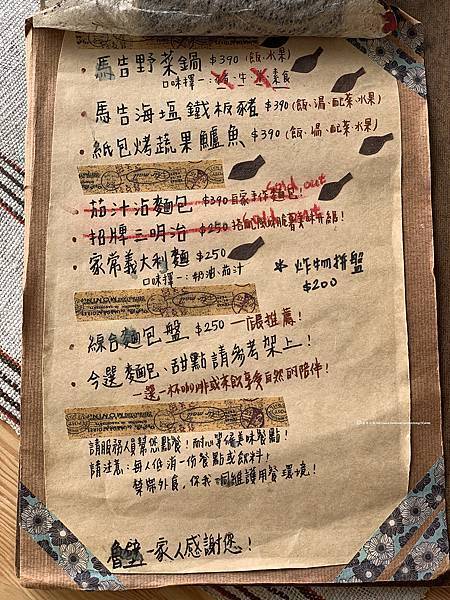 馬告野菜鍋 $390 (飯.水果)
口味擇一:豬.牛.素食
馬告海塩鐵板豬 $390 (飯、湯、配菜、水果)
紙包烤蔬果鱸魚 $390 (飯、湯、配菜、水果)
茄汁沾麵包 $390 自家手作麵包! Sold out
招牌三明治 $250
家常義大利麵 $250
口味擇一:奶油、茄汁
* 炸物拼盤
$200
綜合麵包盤 $250 一店長推薦!
今選麵包、甜點請參考架上!
一選一杯咖啡或茶飲享受自然的陪伴!
請服務人員幫您點餐!耐心等候美味餐點!
請注意:每人低消一份餐點或飲料!
禁帶外食,你我一同維護用餐環境!
一家人感謝您!